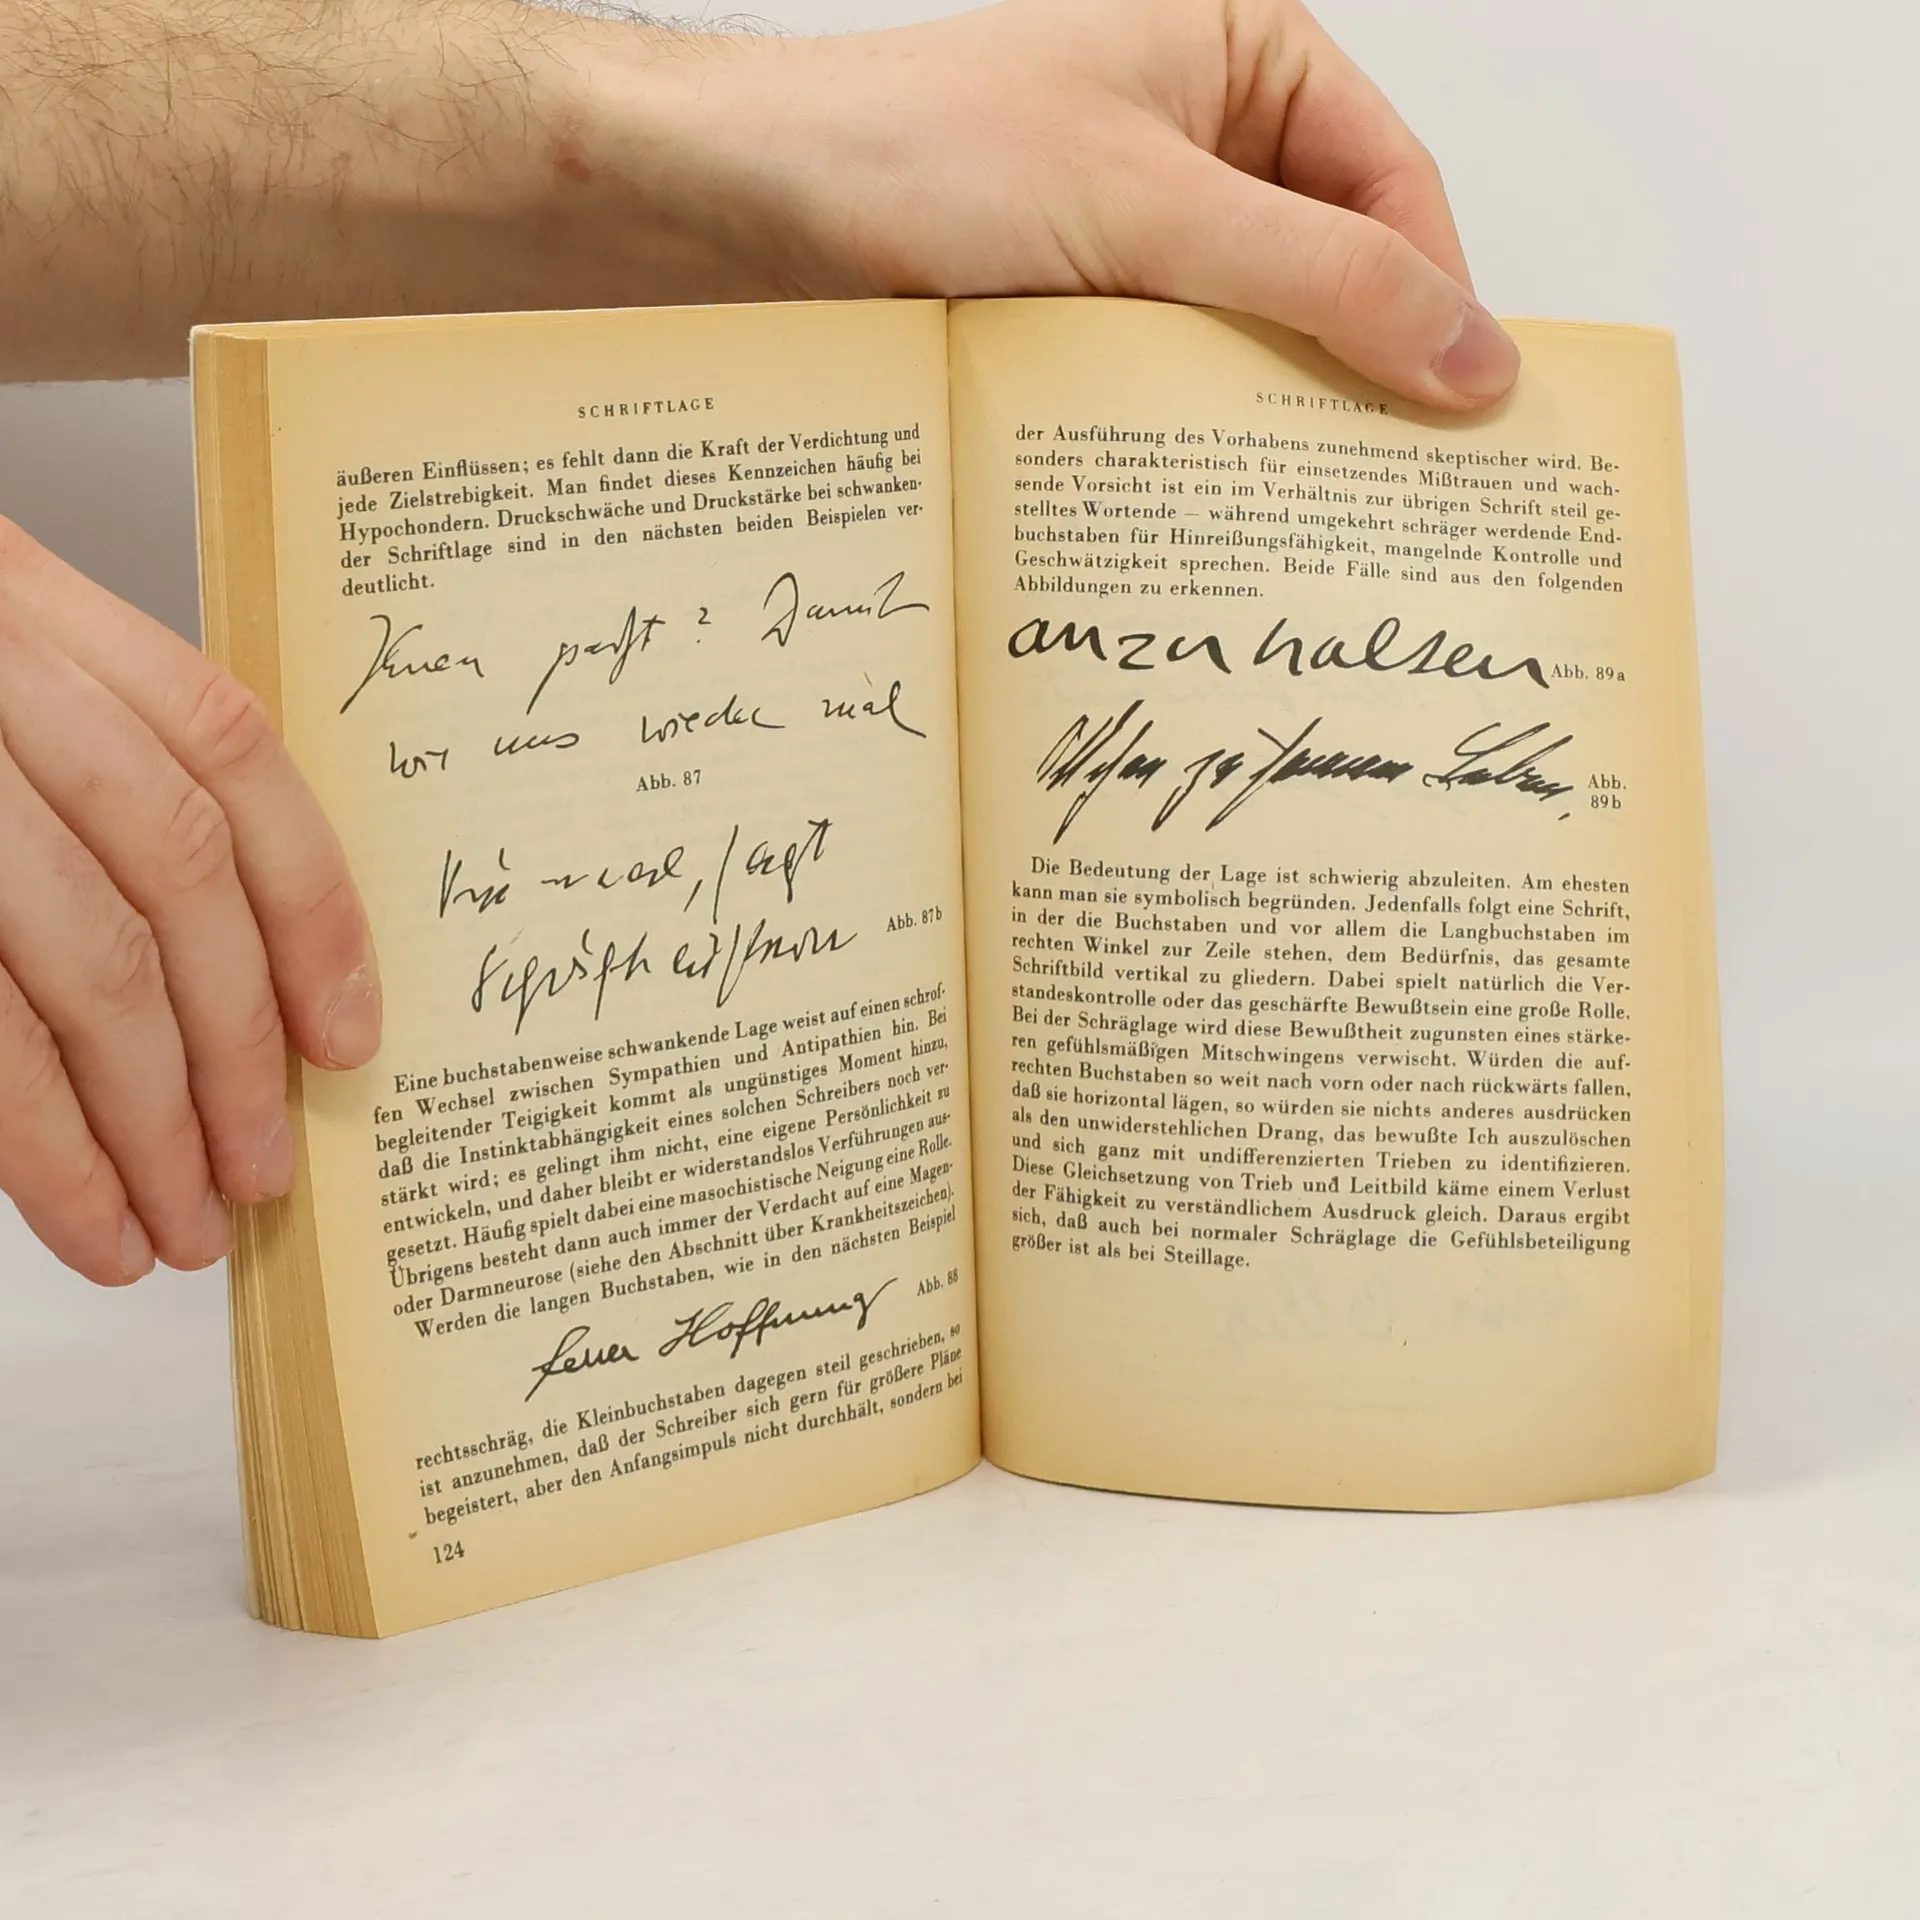 SCHRIFTLAGE
äußeren Einflüssen; es fehlt dann die Kraft der Verdichtung und
jede Zielstrebigkeit. Man findet dieses Kennzeichen häufig bei
Hypochondern. Druckschwäche und Druckstärke bei schwanken-
der Schriftlage sind in den nächsten beiden Beispielen ver-
deutlicht.
Ihnen paßt? Damit
wir uns wieder mal
Abb. 87
mal, sagt
Abb. 87b
Eine buchstabenweise schwankende Lage weist auf einen schrof-
fen Wechsel zwischen Sympathien und Antipathien hin. Bei
begleitender Teigigkeit kommt als ungünstiges Moment hinzu,
daß die Instinktabhängigkeit eines solchen Schreibers noch ver-
stärkt wird; es gelingt ihm nicht, eine eigene Persönlichkeit zu
entwickeln, und daher bleibt er widerstandslos Verführungen aus-
gesetzt. Häufig spielt dabei eine masochistische Neigung eine Rolle.
Übrigens besteht dann auch immer der Verdacht auf eine Magen-
oder Darmneurose (siehe den Abschnitt über Krankheitszeichen).
Werden die langen Buchstaben, wie in den nächsten Beispiel
Hoffnung Abb. 88
rechtsschräg, die Kleinbuchstaben dagegen steil geschrieben, so
ist anzunehmen, daß der Schreiber sich gern für größere Pläne
begeistert, aber den Anfangsimpuls nicht durchhält, sondern bei
124
SCHRIFTLAGE
der Ausführung des Vorhabens zunehmend skeptischer wird. Be-
sonders charakteristisch für einsetzendes Mißtrauen und wach-
sende Vorsicht ist ein im Verhältnis zur übrigen Schrift steil ge-
stelltes Wortende — während umgekehrt schräger werdende End-
buchstaben für Hinreißungsfähigkeit, mangelnde Kontrolle und
Geschwätzigkeit sprechen. Beide Fälle sind aus den folgenden
Abbildungen zu erkennen.
anzuhalten Abb. 89a
zu Abb.
89b
Die Bedeutung der Lage ist schwierig abzuleiten. Am ehesten
kann man sie symbolisch begründen. Jedenfalls folgt eine Schrift,
in der die Buchstaben und vor allem die Langbuchstaben im
rechten Winkel zur Zeile stehen, dem Bedürfnis, das gesamte
Schriftbild vertikal zu gliedern. Dabei spielt natürlich die Ver-
standeskontrolle oder das geschärfte Bewußtsein eine große Rolle.
Bei der Schräglage wird diese Bewußtheit zugunsten eines stärke-
ren gefühlsmäßigen Mitschwingens verwischt. Würden die auf-
rechten Buchstaben so weit nach vorn oder nach rückwärts fallen,
daß sie horizontal lägen, so würden sie nichts anderes ausdrücken
als den unwiderstehlichen Drang, das bewußte Ich auszulöschen
und sich ganz mit undifferenzierten Trieben zu identifizieren.
Diese Gleichsetzung von Trieb und Leitbild käme einem Verlust
der Fähigkeit zu verständlichem Ausdruck gleich. Daraus ergibt
sich, daß auch bei normaler Schräglage die Gefühlsbeteiligung
größer ist als bei Steillage.